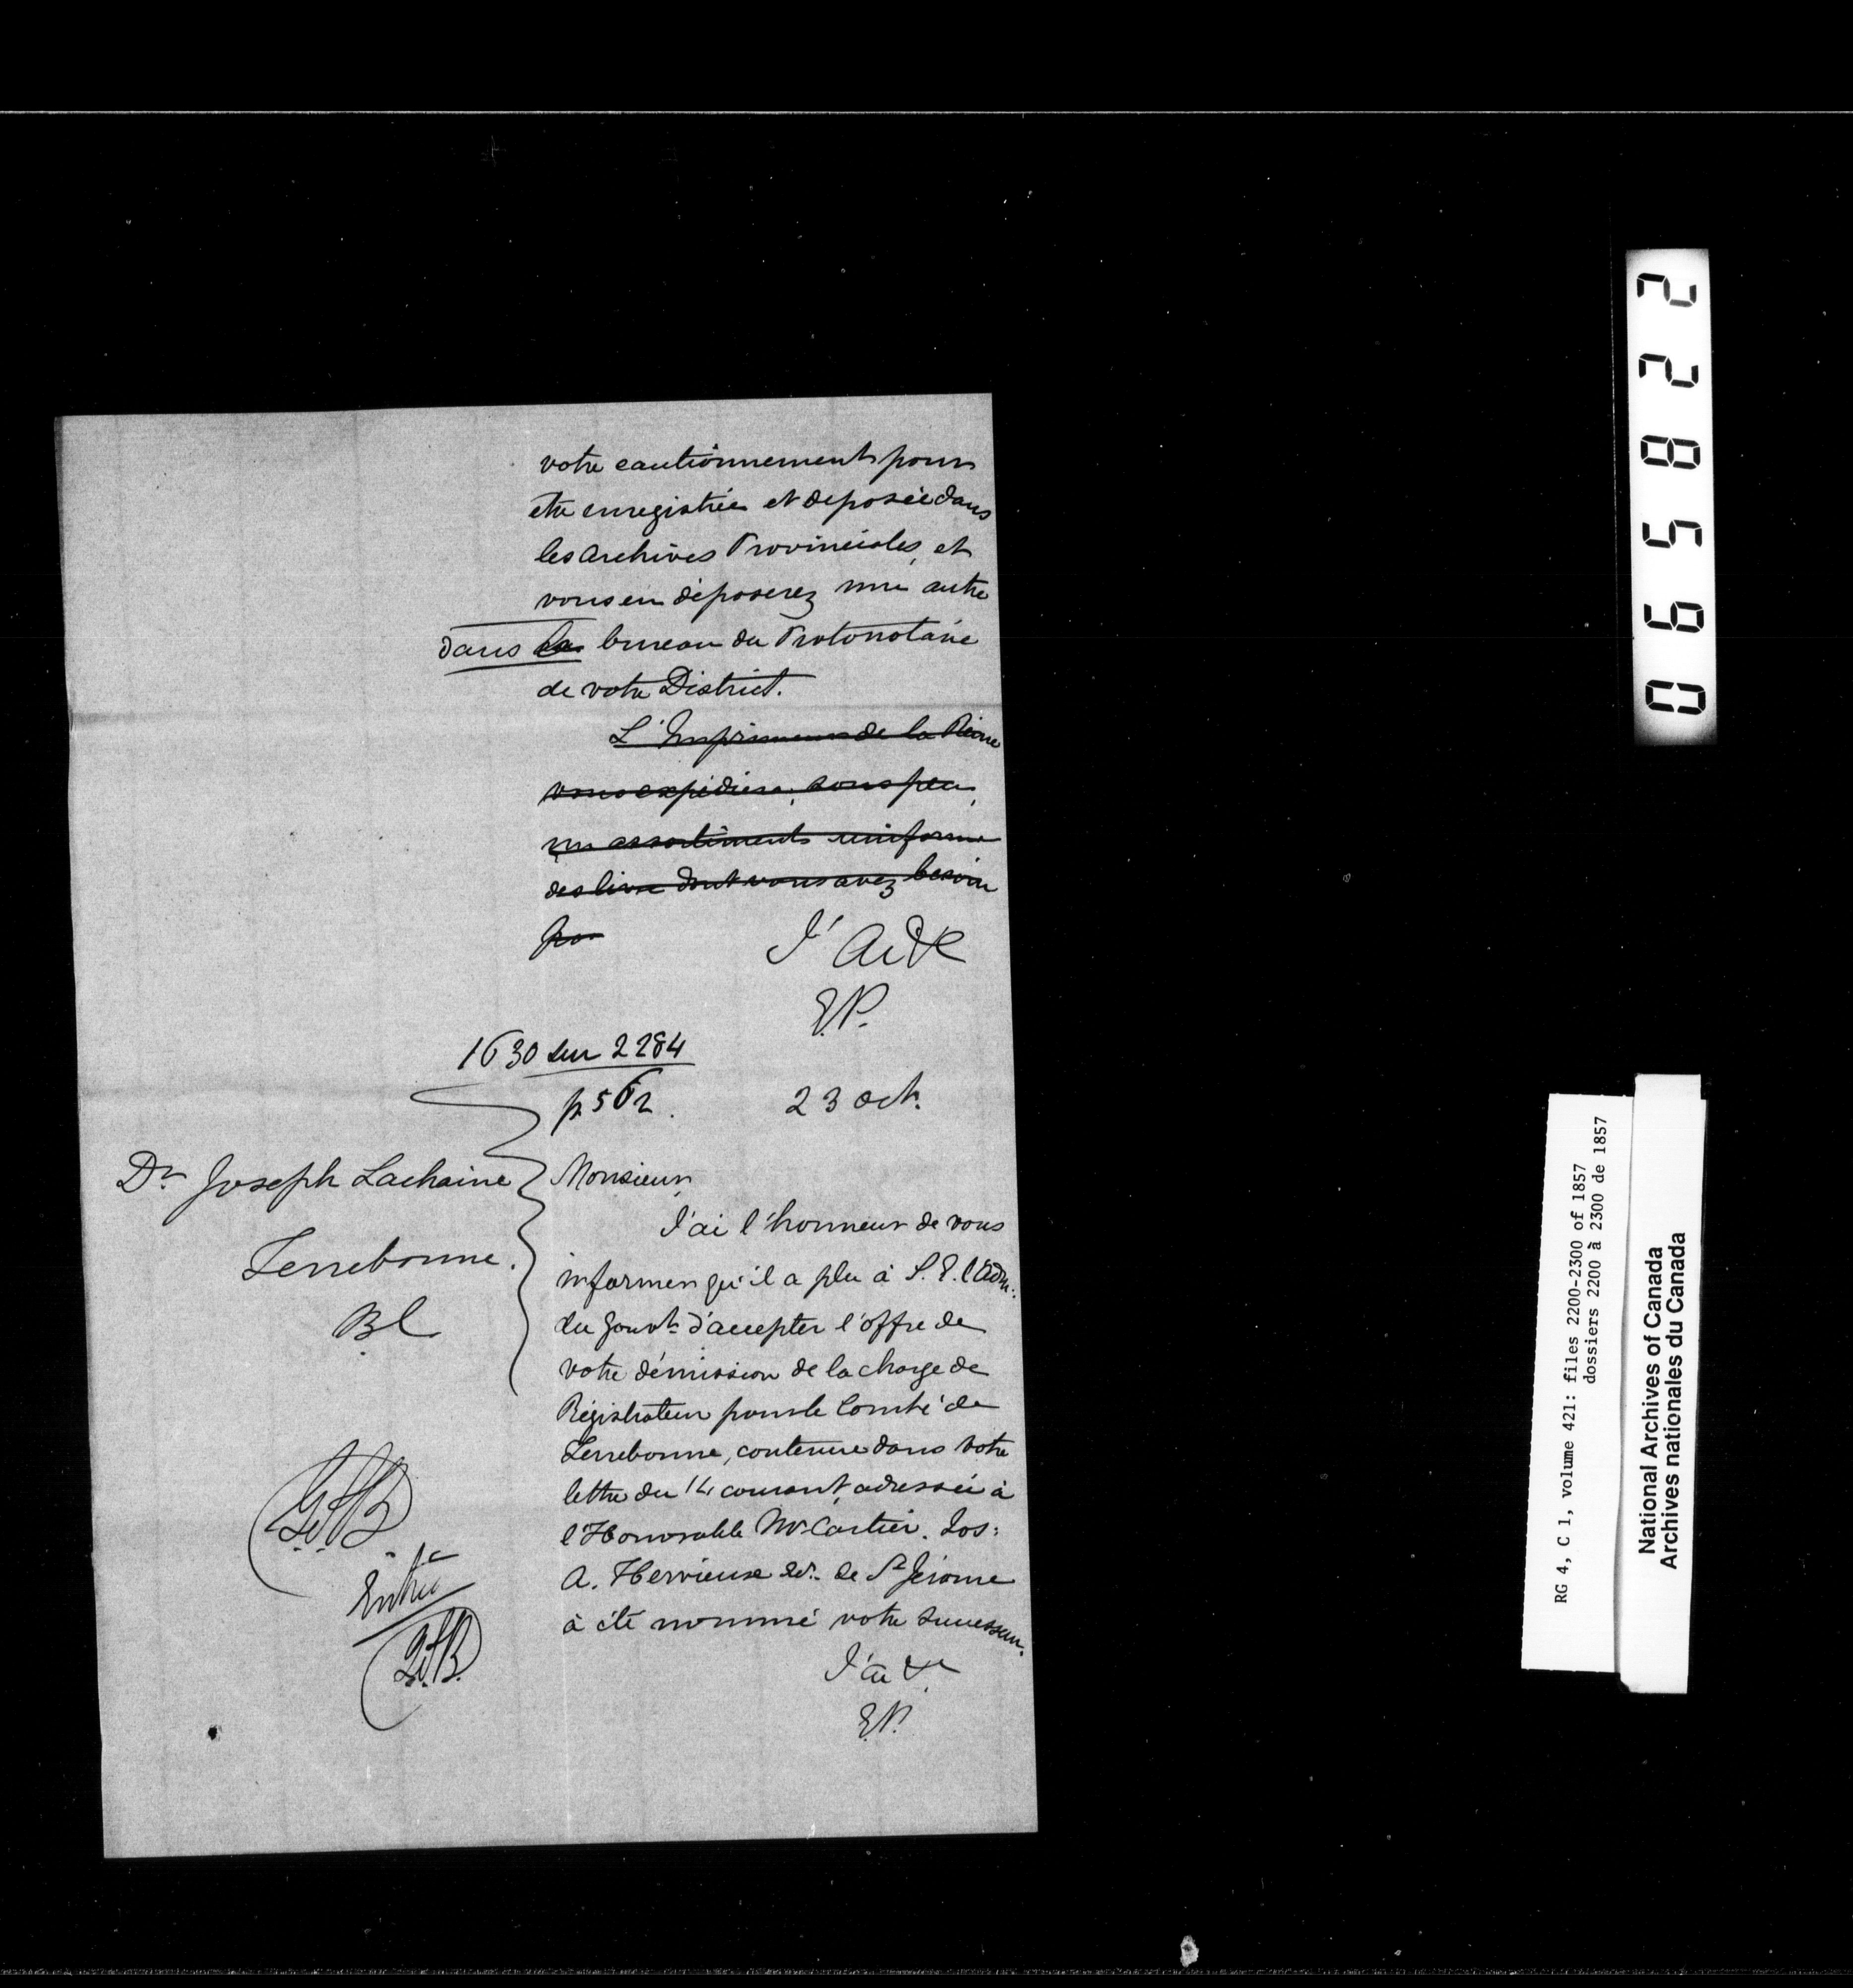 votre cautionnement pour
etre enregistrée et deposée dans
les archives Provinciales, et
vous en déposerez une autre
dans le bureau du Protonotaire
de votre District.
L'Imprimeur de la Reine
vous expédiera, sous peu,
un assortiments uniforme
des livre dont vous avez besoin
po
J'ai &c
E.P.
1630 sur 2284
p. 562.
23 oct.
Dr Joseph Lachaine
Terrebonne.
B.C
Monsieur,
J'ai l'honneur de vous
informer qu'il a plu à S. E. l'Adm:
du Gouvt d'accepter l'offre de
votre démission de la charge de
Régistrateur pour le Comté de
Terrebonne, contenue dans votre
lettre du 14 courant, adressée à
l'Honorable Mr Cartier. Jos:
A. Hervieux Ecr. de St Jérome
à été nommé votre successeur.
J'ai &c.
E.P.
Entré
065922
RG 4, C 1, volume 421: files 2200-2300 of 1857
dossiers 2200 à 2300 de 1857
National Archives of Canada
Archives nationales du Canada